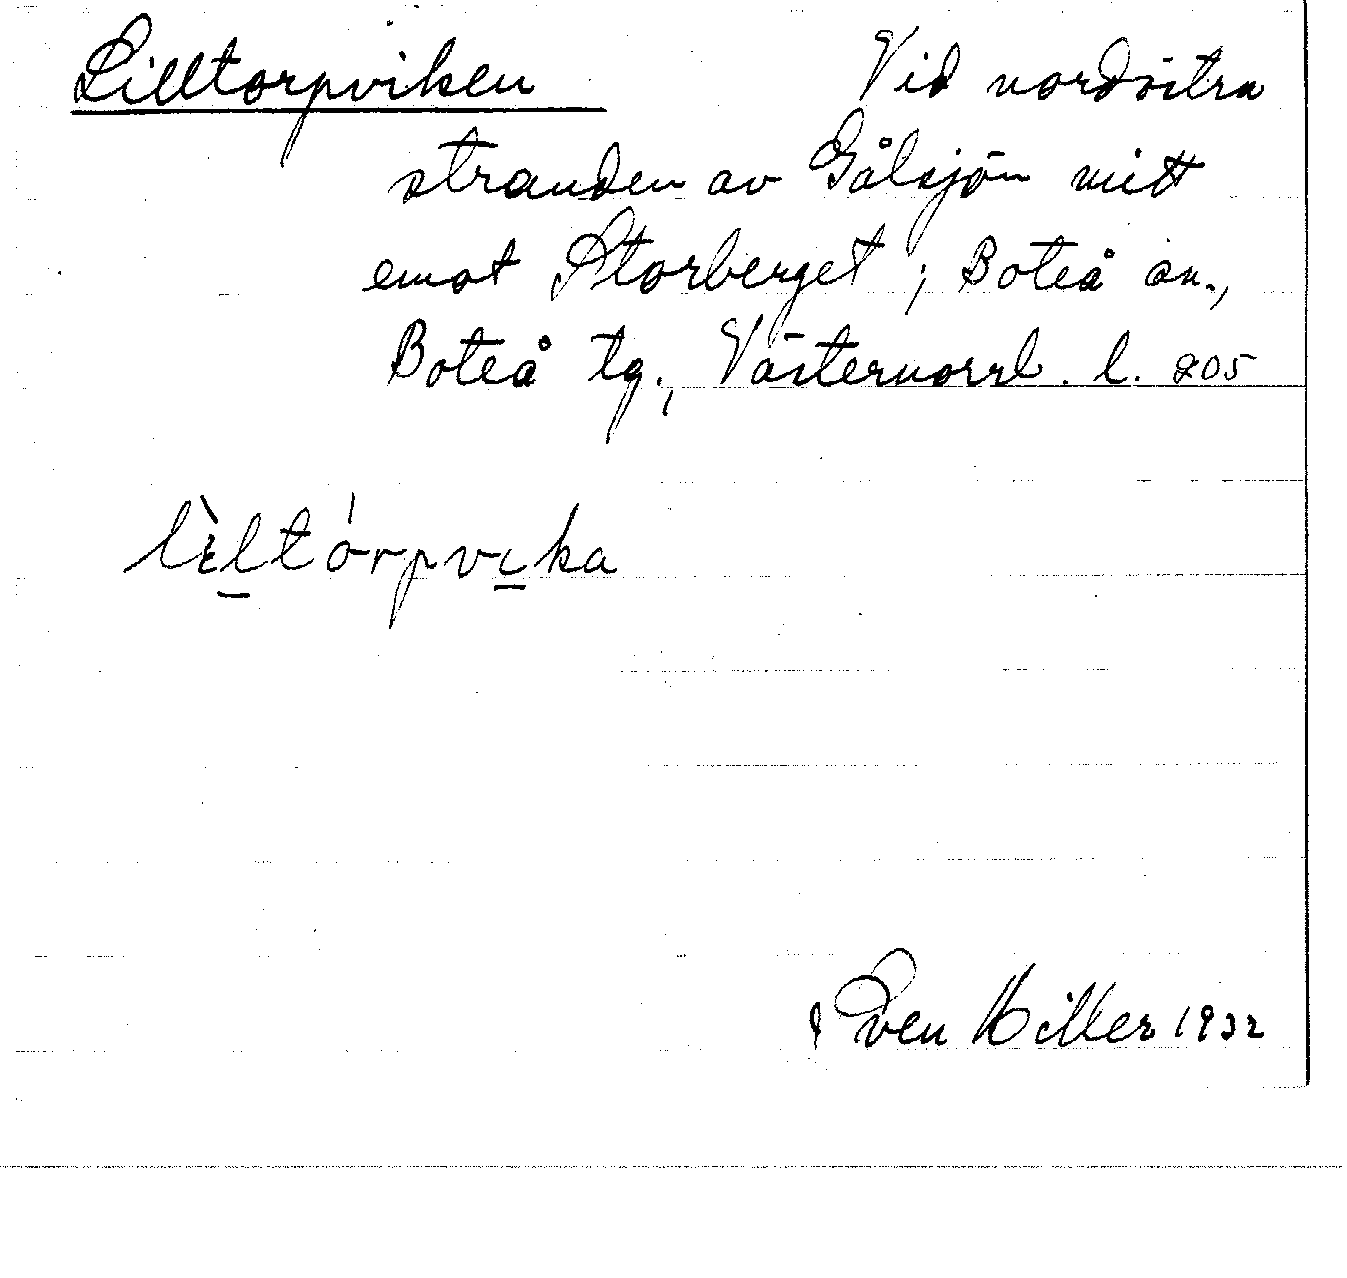 Lilltorpviken Vid nordöstra
stranden av Gålsjön mitt
emot Storberget; Boteå sn.,
Boteå tg., Västernorrl. l. 205
lìltórpvika
Sven Hiller 1932